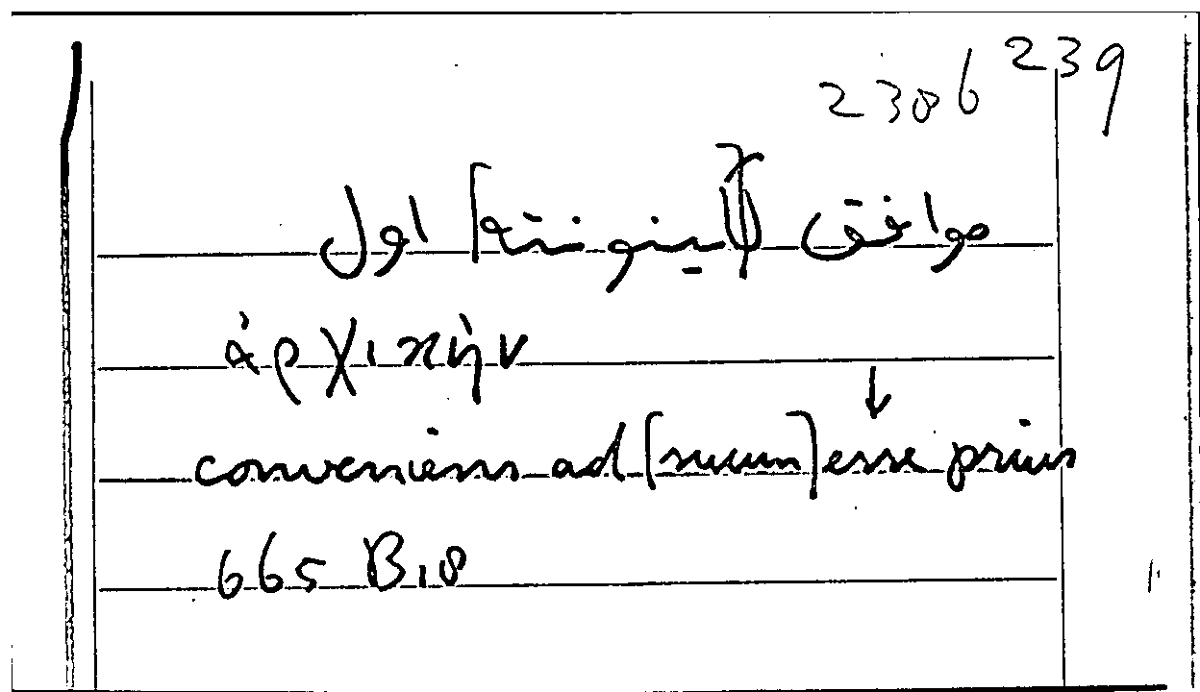 239
2306
موافق [لكينونته] اول
ἀρχικὴν
↓
conveniens ad [suum] esse prius
665 B18